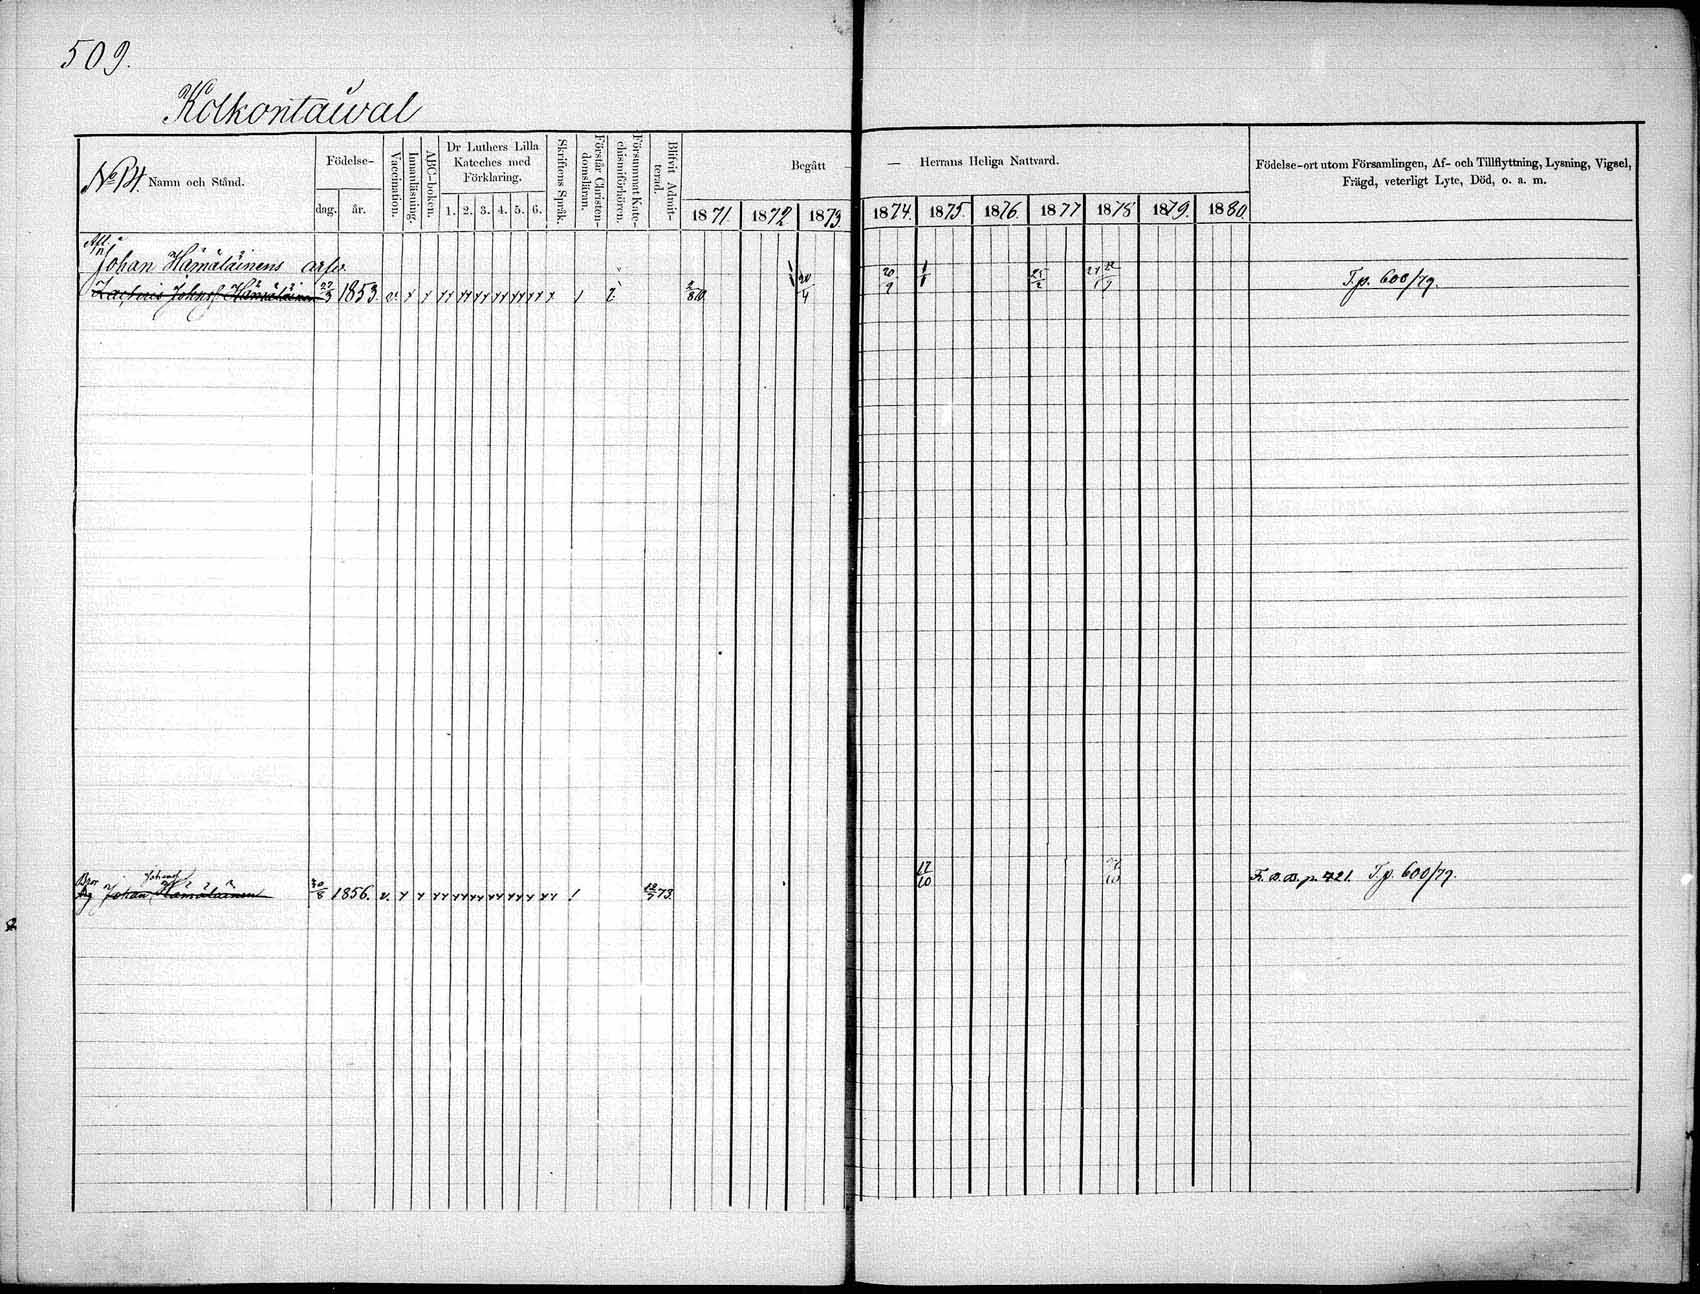 509.
Kolkontaival
No 14. Namn och Stånd.
Födelse-
dag. år.
Vaccination.
Innanläsning.
ABC-boken.
Dr Luthers Lilla
Kateches med
Förklaring.
1. 2. 3. 4. 5. 6.
Skriftens Språk.
Förstår Christen-
domsläran.
Försummat Kate-
chismiförhören.
Blifvit Admit-
terad.
Begått — — Herrans Heliga Nattvard.
1871. 1872 1873. 1874. 1875. 1876. 1877 1878 1879. 1880.
Födelse-ort utom Församlingen, Af- och Tillflyttning, Lysning, Vigsel,
Frägd, veterligt Lyte, Död, o. a. m.
Johan Hämäläinens arfv.
Johns Hämäläinen 27/3 1853. v. 20/4 20/9 1/1 25/2 T.p. 600/79.
Bror
Johan Hämäläinen 30/8 1856. v. 73. 17/10 p. 721. T.p. 600/79.